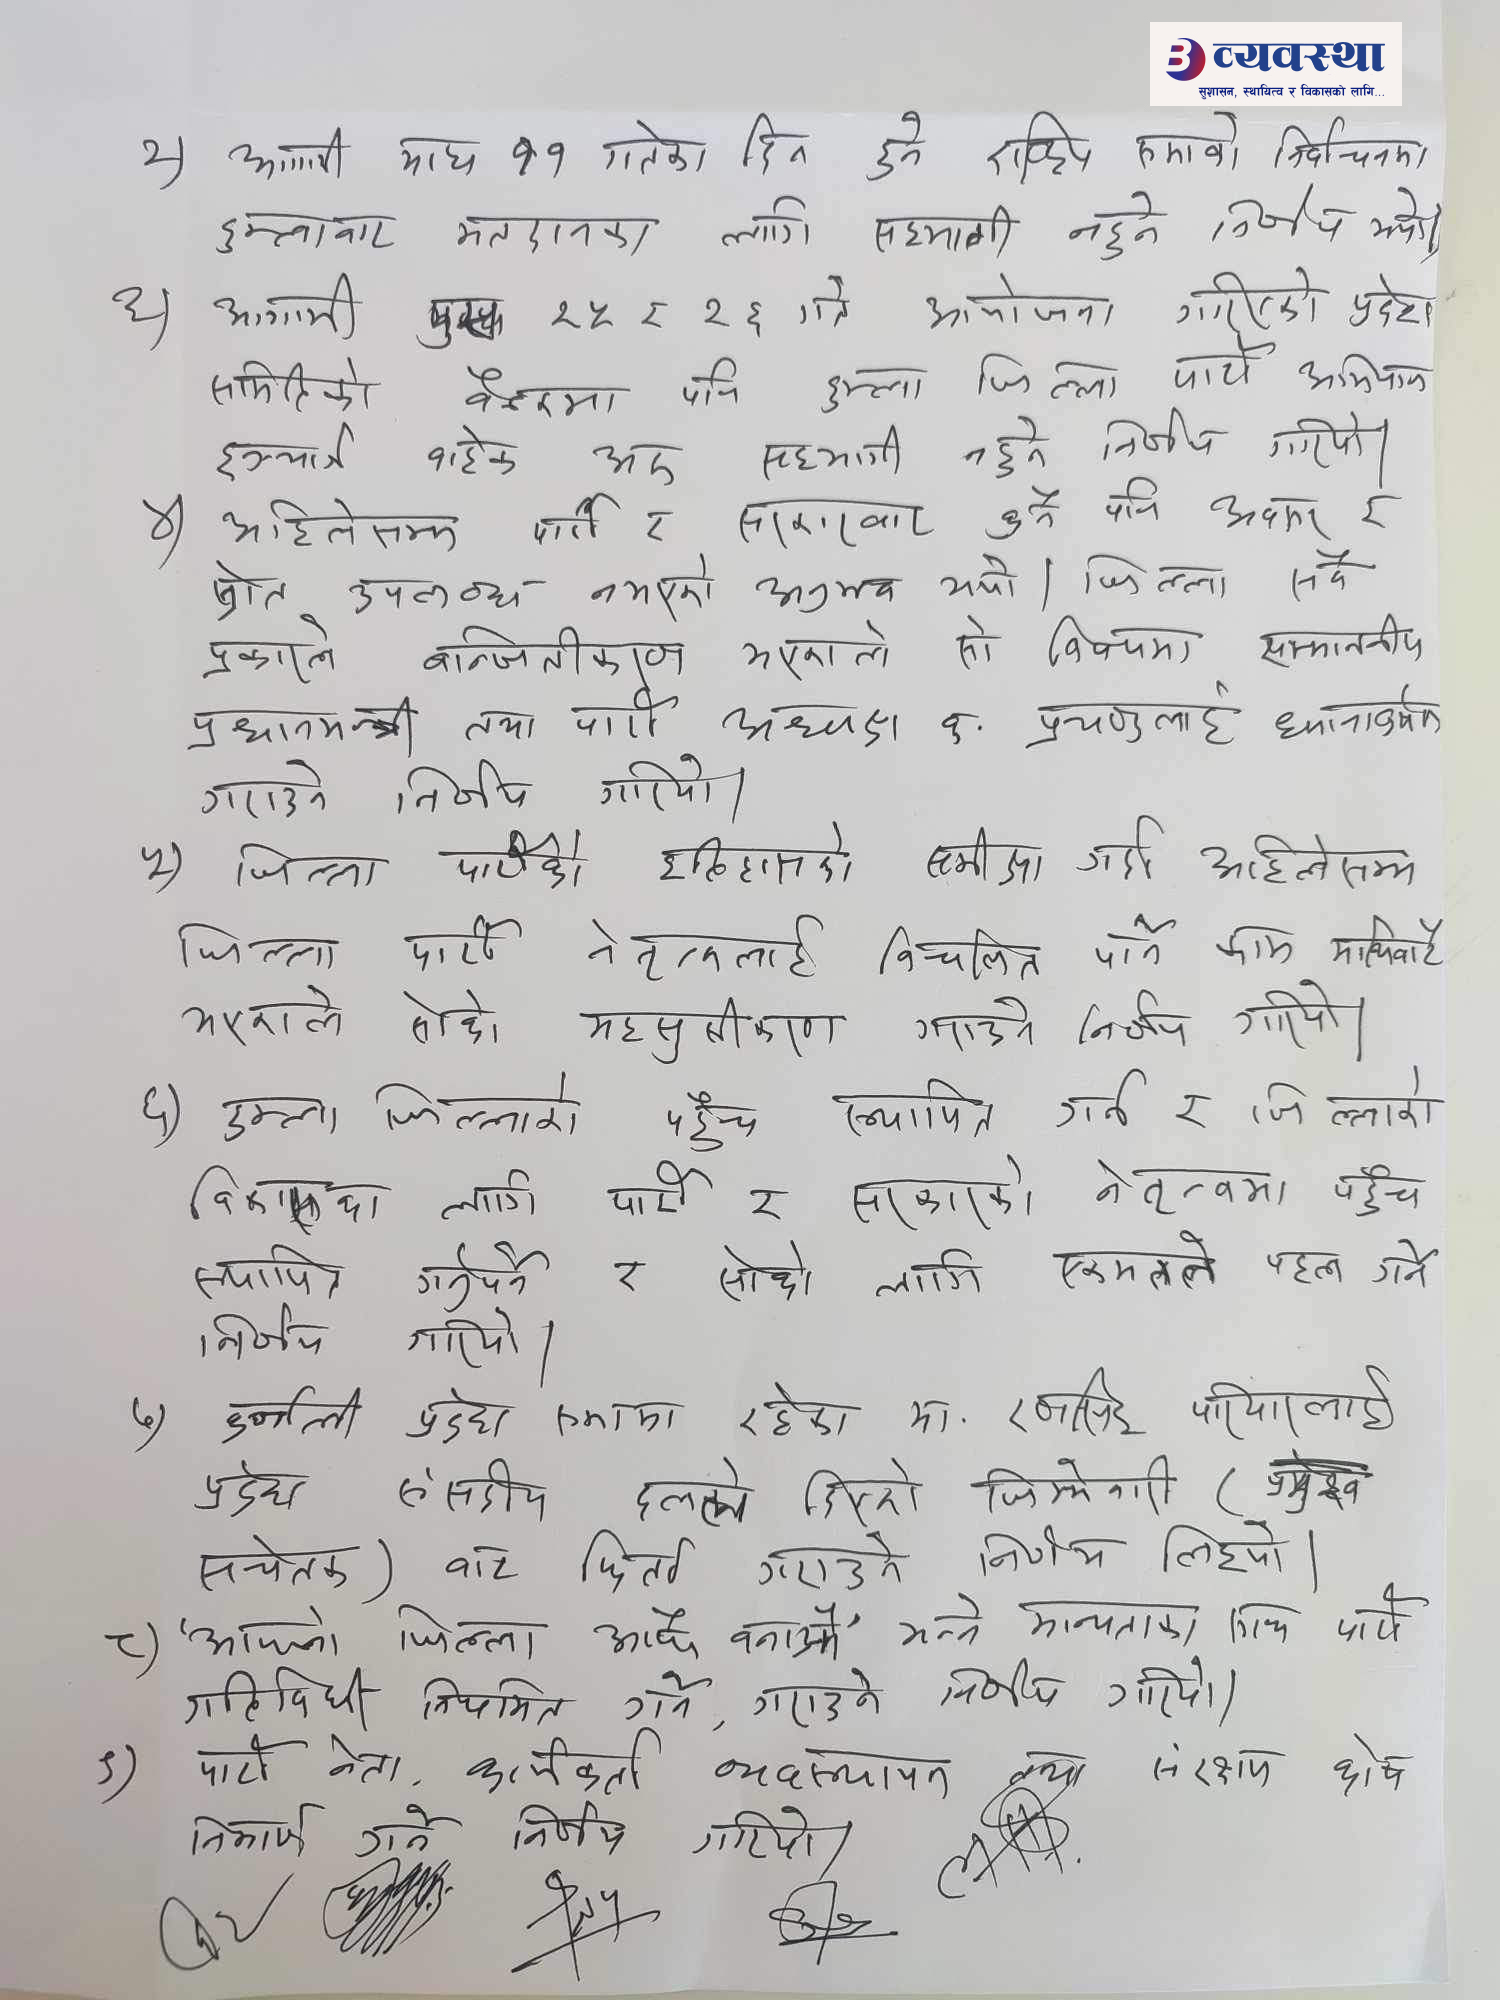 व्यवस्था
सुशासन, स्थायित्व र विकासको लागि...
२) आगामी माघ ११ गतेका दिन हुने राष्ट्रिय सभाको निर्वाचनमा
हुम्लाबाट मतदानका लागि सहभागी नहुने निर्णय भयो।
३) आगामी पुस २५ र २६ गते आयोजना गरिएको प्रदेश
समितिको बैठकमा पनि हुम्ला जिल्ला पार्टी अभियान
इन्चार्ज बाहेक अरु सहभागी नहुने निर्णय गरियो।
४) अहिलेसम्म पार्टी र सरकारबाट कुनै पनि अवसर र
स्रोत उपलब्ध नभएको अनुभव भयो। जिल्ला सबै
प्रकारले बन्चितीकरण भएकाले सो विषयमा सम्माननीय
प्रधानमन्त्री तथा पार्टी अध्यक्ष क. प्रचण्डलाई ध्यानाकर्षण
गराउने निर्णय गरियो।
५) जिल्ला पार्टीको इतिहासको समीक्षा गर्दा अहिलेसम्म
जिल्ला पार्टी नेतृत्वलाई विचलित पार्ने काम माथिबाटै
भएकाले सोको महसुसीकरण गराउने निर्णय गरियो।
६) हुम्ला जिल्लाको पहुँच स्थापित गर्न र जिल्लाको
विकासका लागि पार्टी र सरकारको नेतृत्वमा पहुँच
स्थापित गर्नुपर्ने र सोको लागि एकमतले पहल गर्ने
निर्णय गरियो।
७) कर्णाली प्रदेश सभामा रहेका मा. रणसिंह परियारलाई
प्रदेश संसदीय दलले दिएको जिम्मेवारी (प्रमुख
सचेतक) बाट फिर्ता गराउने निर्णय लिइयो।
८) 'आफ्नो जिल्ला आफै बनाऔं' भन्ने मान्यताका साथ पार्टी
गतिविधी नियमित गर्ने, गराउने निर्णय गरियो।
९) पार्टी नेता, कार्यकर्ता व्यवस्थापन तथा संरक्षण कोष
निर्माण गर्ने निर्णय गरियो।